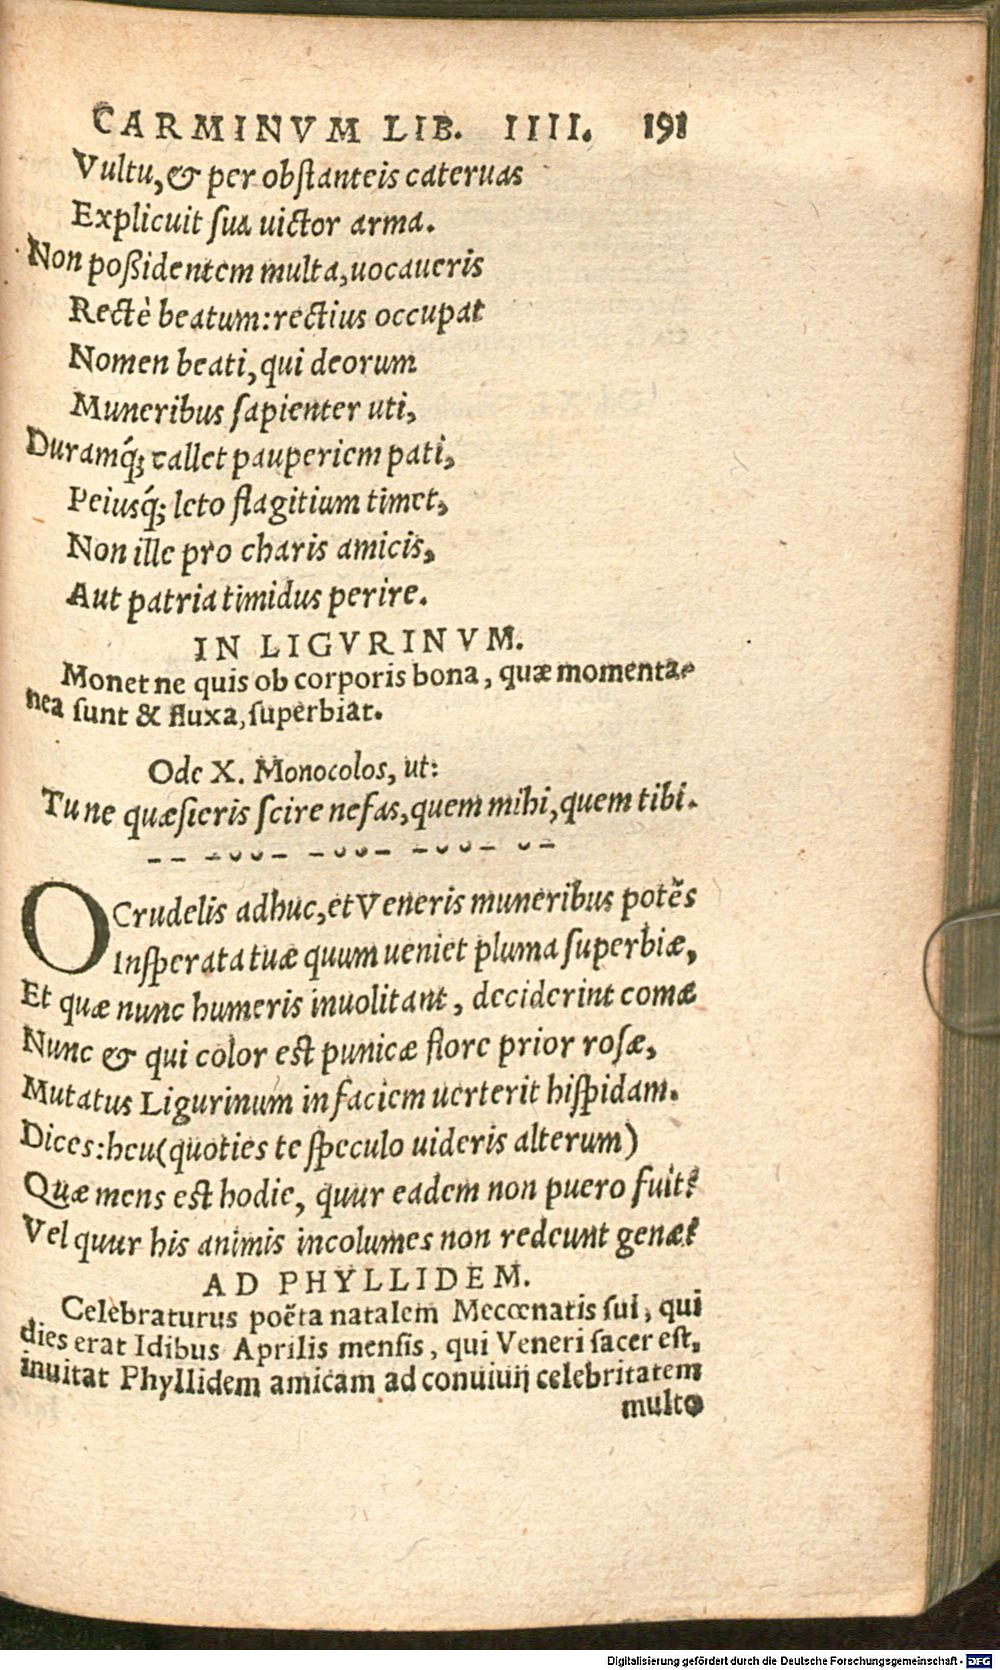 CARMINVM LIB. IIII. 191
Vultu, & per obſtanteis cateruas
Explicuit ſua uictor arma.
Non poßidentem multa, uocaueris
Rectè beatum: rectius occupat
Nomen beati, qui deorum
Muneribus ſapienter uti,
Duramq́; callet pauperiem pati,
Peiusq́; leto flagitium timet,
Non ille pro charis amicis,
Aut patria timidus perire.
IN LIGVRINVM.
Monet ne quis ob corporis bona, quæ momenta-
nea ſunt & fluxa, ſuperbiat.
Ode X. Monocolos, ut:
Tu ne quæſieris ſcire nefas, quem mihi, quem tibi.
– – – ᴗ ᴗ – – ᴗ ᴗ – – ᴗ ᴗ – ᴗ –
O Crudelis adhuc, et Veneris muneribus potẽs
Inſperata tuæ quum ueniet pluma ſuperbiæ,
Et quæ nunc humeris inuolitant, deciderint comæ
Nunc & qui color eſt punicæ flore prior roſæ,
Mutatus Ligurinum in faciem uerterit hiſpidam.
Dices: heu (quoties te ſpeculo uideris alterum)
Quæ mens eſt hodie, quur eadem non puero fuit?
Vel quur his animis incolumes non redeunt genæ?
AD PHYLLIDEM.
Celebraturus poëta natalem Mecœnatis ſui, qui
dies erat Idibus Aprilis menſis, qui Veneri ſacer eſt,
inuitat Phyllidem amicam ad conuiuij celebritatem
multo
Digitalisierung gefördert durch die Deutsche Forschungsgemeinschaft - DFG